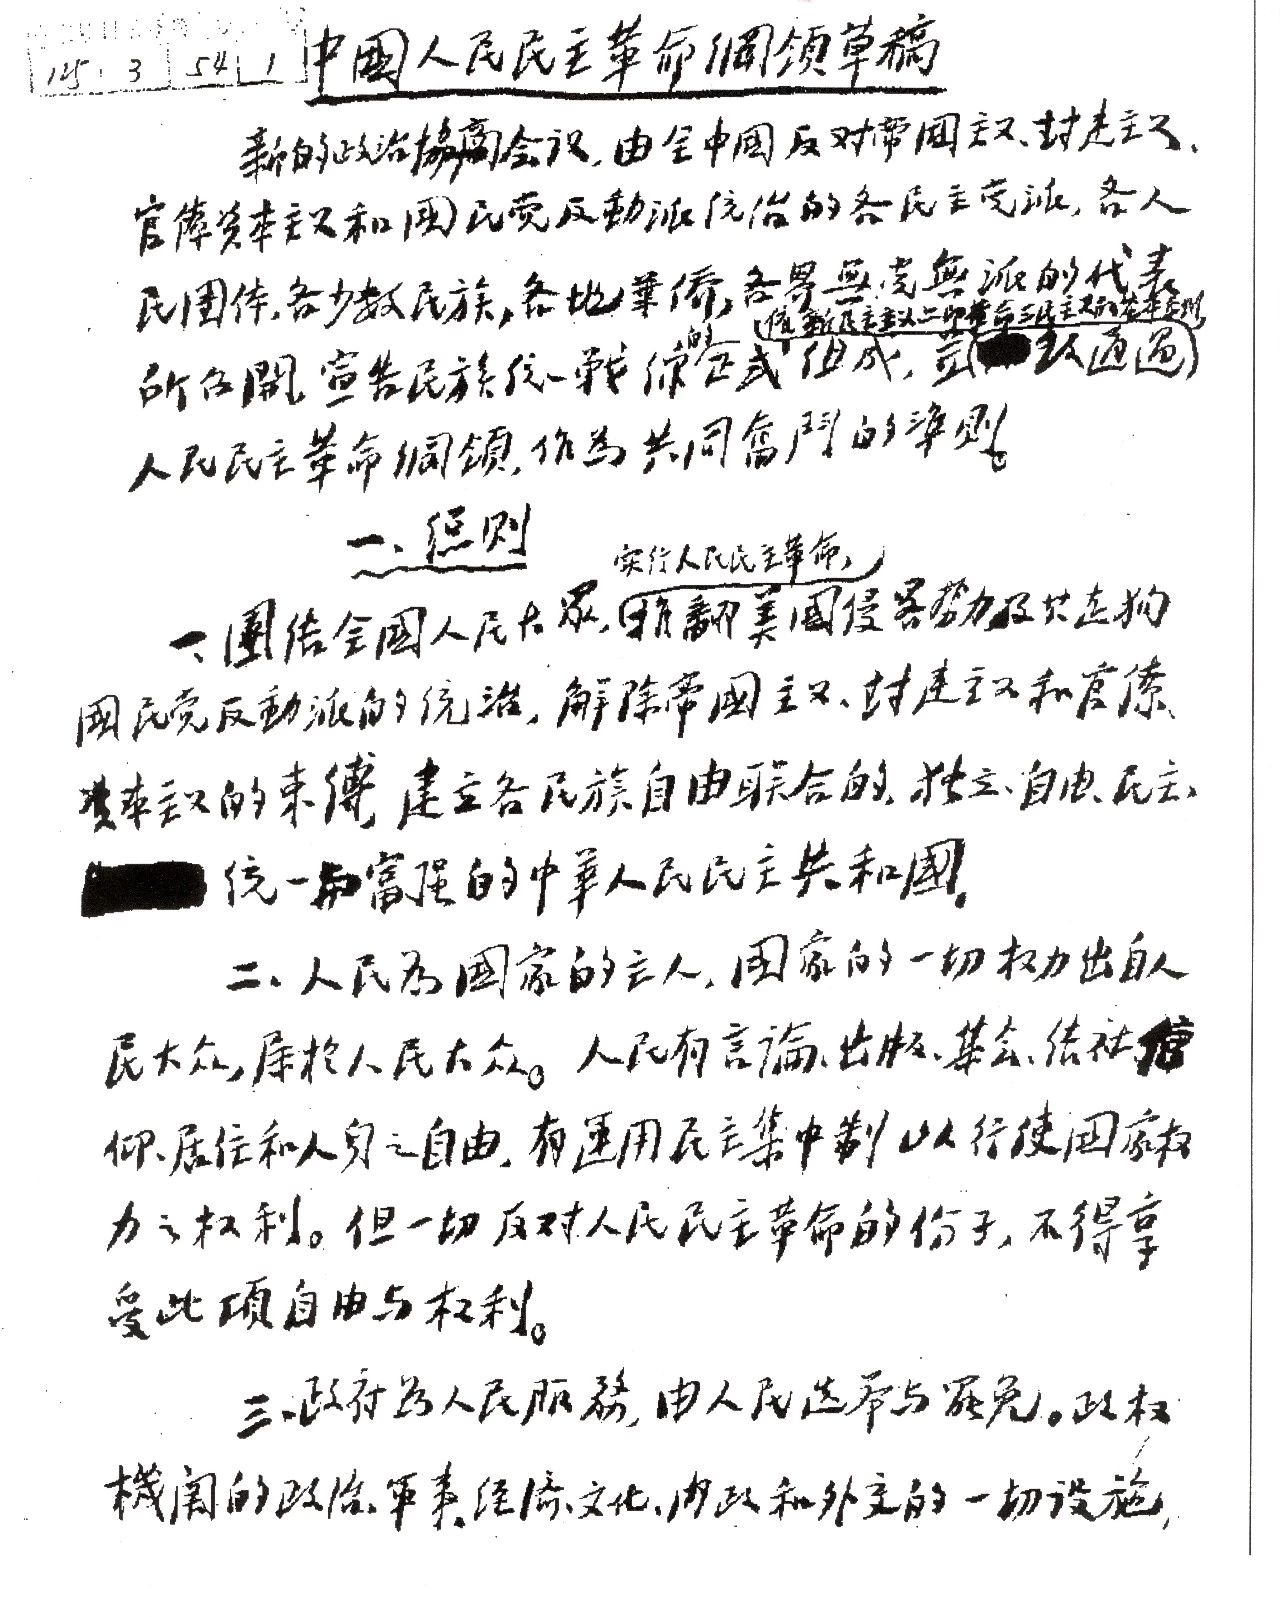 125 3 54 1
中國人民民主革命綱領草稿
新的政治協商会议，由全中國反对帝國主义、封建主义、
官僚资本主义和國民党反動派统治的各民主党派，各人
民团体，各少数民族，各地華僑，各界無党無派的代表
依新民主主义——即革命三民主义的基本原则，
所召開，宣告民族统一戰線的正式组成，並致通过
人民民主革命綱領，作为共同奮鬥的準則。
一、總则
实行人民民主革命，
一、團结全國人民大眾，推翻美國侵畧势力及其走狗
國民党反動派的统治，解除帝國主义、封建主义和官僚
资本主义的束缚，建立各民族自由联合的，独立、自由、民主、
统一与富强的中華人民民主共和國。
二、人民为國家的主人，国家的一切权力出自人
民大众，属於人民大众。人民有言論、出版、集会、结社、信
仰、居住和人身之自由，有運用民主集中制以行使國家权
力之权利。但一切反对人民民主革命的份子，不得享
受此項自由与权利。
三、政府为人民服務，由人民选举与罢免。政权
機関的政治、軍事、经濟、文化、内政和外交的一切设施，